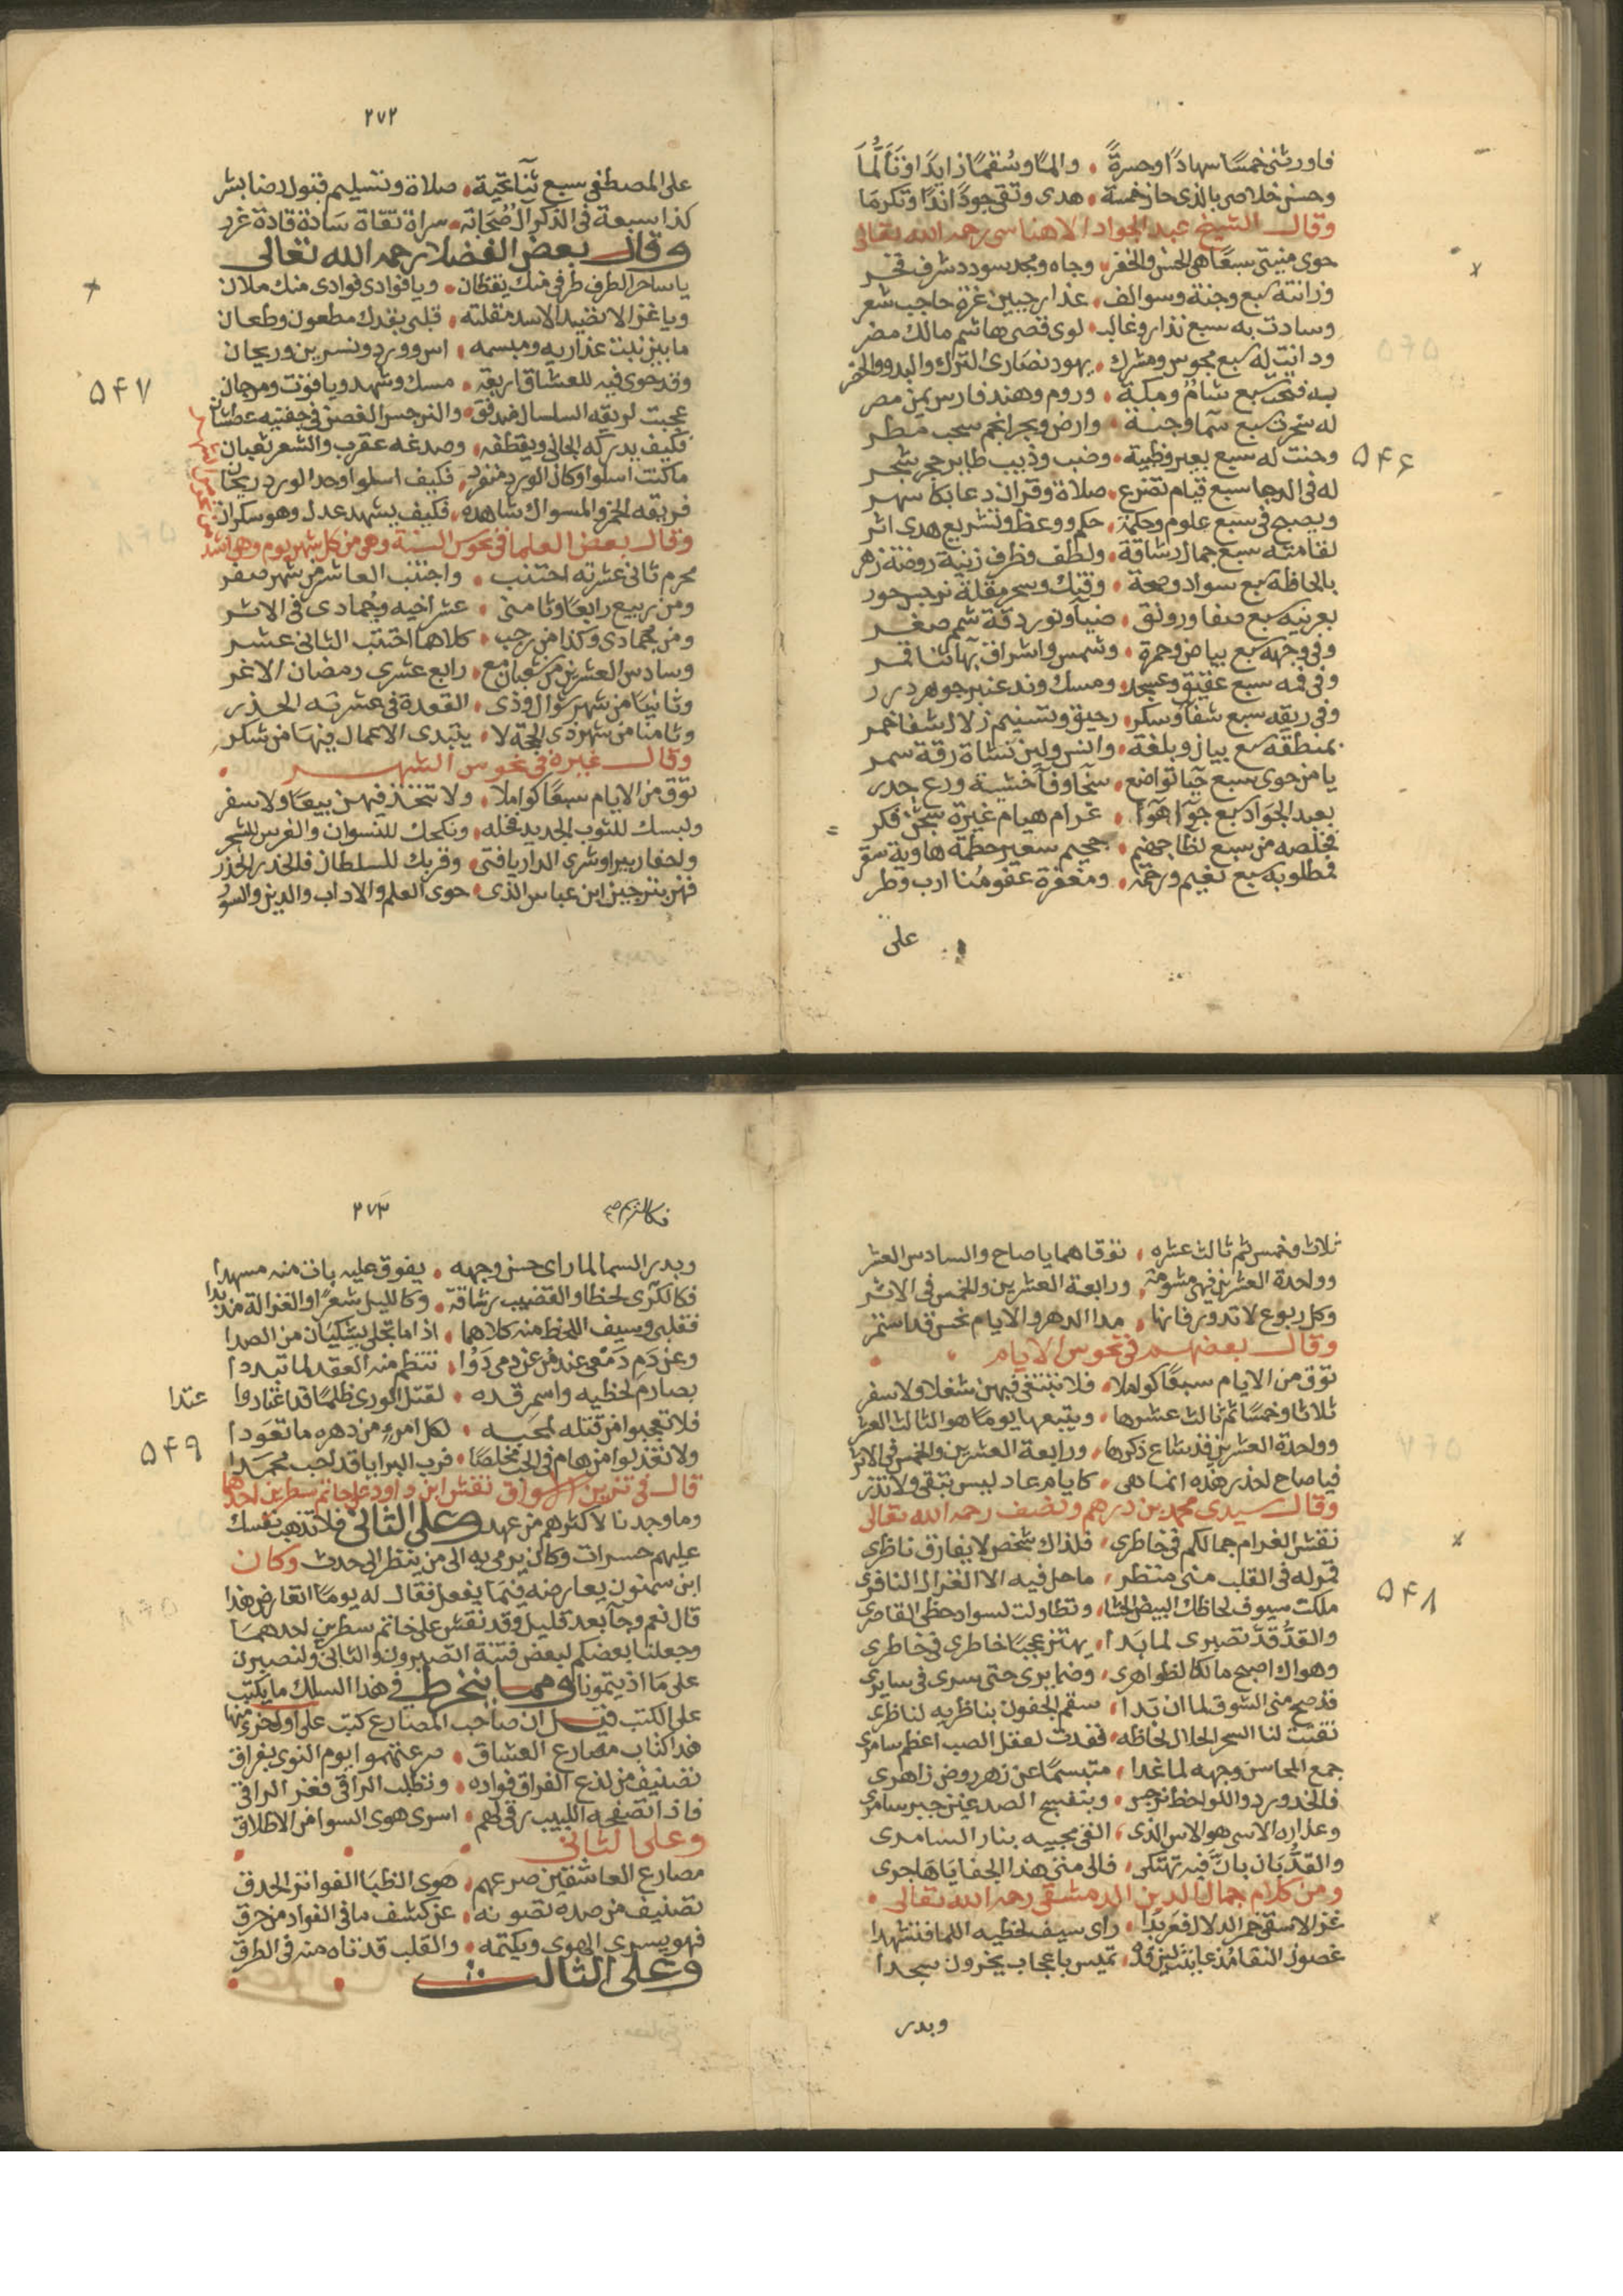 فاورثنى خمسًا سهادًا وحسرةً والمًا وسقمًا زايدًا وتألُّمَا
وحسن خلاصى بالذى حاز خمسة هدى وتقى جودًا ندًا وتكرمَا
وقال الشيخ عبد الجواد الاهناسى رحمه الله تعالى
حوى منيتى سبعًا هى الحسن والخفر وجاه ومجد سودد شرف فخر
وزانته سبع وجنة وسوالف عذار جبين غرة حاجب شعر
وسادت به سبع نذار وغالب لوى قصى هاشم مالك مضر
ودانت له سبع مجوس ومشرك يهود نصارى الترك والبدو والحضر
به فتحت سبع شام ومكة وروم وهند فارس يمن مصر
له سخرت سبع سما وجنة وارض وبحر انجم سحب مطر
وحنت له سبع بعير وظبية وضب وذيب طاير حجر شجر
له فى الدجا سبع قيام تضرع صلاة وقران دعا بكا سهر
ويصبح فى سبع علوم وحكمة حكم ووعظ وتشريع هدى اثر
لقامته سبع جمال رشاقة ولطف وظرف زينة روضة زهر
بالحاظه سبع سواد وصحة وفتك وسحر مقلة نرجس حور
بعرنينه سبع صفا ورونق ضيا ونور دقة شمم صغر
وفى وجهه سبع بياض وحمرة وشمس واشراق بها سنا قمر
وفى فمه سبع عقيق وعسجد ومسك وند عنبر جوهر درر
وفى ريقه سبع شفا وسكر رحيق وتسنيم زلال شفا خمر
بمنطقه سبع بيان وبلغة والس ولين نشاة رقة سمر
يا من حوى سبع حيا تواضع سخا وفا خشية ورع حذر
بعبد الجواد سبع جوا هوا غرام هيام غيرة شجن فكر
فخلصه من سبع لظا جهنم جحيم سعير حطمة هاوية سقر
فمطلوبه سبع نعيم ورحمة ومغفرة عفو منا ارب وطر
على
۵۴۶
٢٧٢
على المصطفى سبع ثنا تحية صلاة وتسليم قبول رضا بشر
كذا سبعة فى الذكر ال صحابة سراة تقاة سادة قادة غرر
وقال بعض الفضلا رحمه الله تعالى
يا ساحر الطرف طرفى منك يقظان ويا فوادى فوادى منك ملان
ويا غزالا تصيد الاسد مقلته قلبى بقدك مطعون وطعان
ما بين نبت عذاريه ومبسمه اس وورد ونسرين وريحان
وقد حوى فيه للعشاق اربعة مسك وشهد وياقوت ومرجان
عجبت لريقه السلسال فيه غدق والنرجس الغض فى جفنيه عطشان
فكيف يدركه الجانى ويقطفه وصدغه عقرب والشعر ثعبان
ما كنت اسلوا وكان الورد منفرد فكيف اسلوا وحد الورد ريحان
فريقه الخمر والمسواك شاهده فكيف يشهد عدل وهو سكران
وقال بعض العلما فى نحوس السنة وهى من كل شهر يوم وهى اشد
محرم ثانى عشرته اجتنب واجتنب العاشر من شهر صفر
ومن ربيع رابعًا وثامنى عشر اخيه وجمادى فى الاثر
ومن جمادى وكذا من رجب كلاهما اجتنب الثانى عشر
وسادس العشرين من شعبان مع رابع عشرى رمضان الاغر
وثانيًا من شهر شوال وذى القعدة فى عشرته الحذر
وثامنًا من شهر ذى الحجة لا يبتدى الاعمال فيها من شكر
وقال غيره فى نحوس الشهر
توق من الايام سبعًا كواملا ولا تتخذ فيهن بيعًا ولا سفر
ولبسك للثوب الجديد فخله ونكحك للنسوان والغرس للشجر
ولحفار بير او شرى الدار يافتى وقربك للسلطان فالحذر الحذر
فهن بترجيز ابن عباس الذى حوى العلم والاداب والدين والسور
۵۴۷
ثلاث وخمس ثم ثالث عشره توقاهما يا صاح والسادس العشر
وواحدة العشرين فهى مشومة ورابعة العشرين والخمس فى الاثر
وكل ربوع لا تدور فانها مدا الدهر والايام نحس قد استمر
وقال بعضهم فى نحوس الايام
توق من الايام سبعًا كواملا فلا تبتغى فيهن شغلا ولا سفر
ثلاثا وخمسًا ثم ثالث عشرها ويتبعها يومًا هو الثالث العشر
وواحدة العشرين قد شاع ذكرها ورابعة العشرين والخمس فى الاثر
فيا صاح احذر هذه انما هى كايام عاد ليس تبقى ولا تذر
وقال سيدى محمد بن درهم ونصف رحمه الله تعالى
نقش الغرام جمالكم فى خاطرى فلذاك شخص لا يفارق ناظرى
قمر له فى القلب منى منتظر ما حل فيه الا الغزال النافرى
ملكت سيوف لحاظك البيض الحشا وتطاولت لسواد حظى القاصرى
والقدُّ قدَّ تصبرى لما بَدا يهتز عجبًا خاطرى فى خاطرى
وهواك اصبح مالكًا لظواهرى وضمايرى حتى سرى فى سايرى
قد صح منى الشوق لما ان بَدا سقم الجفون بناظريه لناظرى
نفثت لنا السحر الحلال لحاظه فغدت لعقل الصب اعظم سامرى
جمع المحاسن وجهه لما غدا متبسمًا عن زهر روض زاهرى
فالخد ورد واللواحظ نرجس وبنفسج الصدغين حير سامرى
وعذاره الاسى هو الاس الذى القى محبيه بنار السامرى
والقدُّ بَان بانَّ فيه تهتكى فالى متى هذا الجفا ياهاجرى
ومن كلام جمال الدين الدمشقى رحمه الله تعالى
غزالا سقى خمر الدلال فعربدا راى سيف لحظيه اللما فتشهدا
غصون النقا مذ عاينت لين قده تميس باعجاب يخرون سجدا
وبدر
۵۴۸
٢٧٣
وبدر السما لما راى حسن وجهه يفوق عليه بات منه مسهدا
فكالكرى لحظا والقضيب رشاقة وكالليل شعرًا والغزالة مذ بدا
فقلبى وسيف اللحظ منه كلاهما اذا ما تجلى يشكيان من الصدا
وعن دَم دَمعى عندمٌ عن دمى رَوُا تنظم منه العقد لما تبددا
بصارم لحظيه واسمر قده لقتل الورى ظلمًا قد اغتادوا عتدا
فلا تعجبوا من قتله لمحبه لكل امرءٍ من دهره ما تعودا
ولا تعذلوا من هام فى الحب مخلصًا فرب البرايا قد احب محمدا
قال فى تزيين الاسواق نقش ابن داود على خاتم سطرين احدهما
وما وجدنا لاكثرهم من عهد وعلى الثانى فلا تذهب نفسك
عليهم حسرات وكان يرمى به الى من ينظر الى حدث وكان
ابن سمنون يعارضه فيمَا يفعل فقال له يومًا اتعارض هذا
قال نعم وجآ بعد قليل وقد نقش على خاتم سطرين احدهمَا
وجعلنا بعضكم لبعض فتنة اتصبرون والثانى ولنصبرن
على مَا اذيتمونا ومما ينخرط فى هذا السلك ما يكتب
على الكتب قيل ان صاحب المصارع كتب على اول جزء منها
هذا كتاب مصارع العشاق صرعتهموا يوم النوى بفراق
تصنيف من لذع الفراق فواده وتطلب الراقى فعز الراقى
فاذا تصفحه اللبيب رق لهم اسرى هوى ايسوا من الاطلاق
وعلى الثانى
مصارع العاشقين صرعهم هوى الظبا الفواتر الحدق
تصنيف من صده تصونه عن كشف ما فى الفواد من حرق
فهو يسرى الهوى ويكتمه والقلب قد تاه منه فى الطرق
وعلى الثالث
۵۴۹